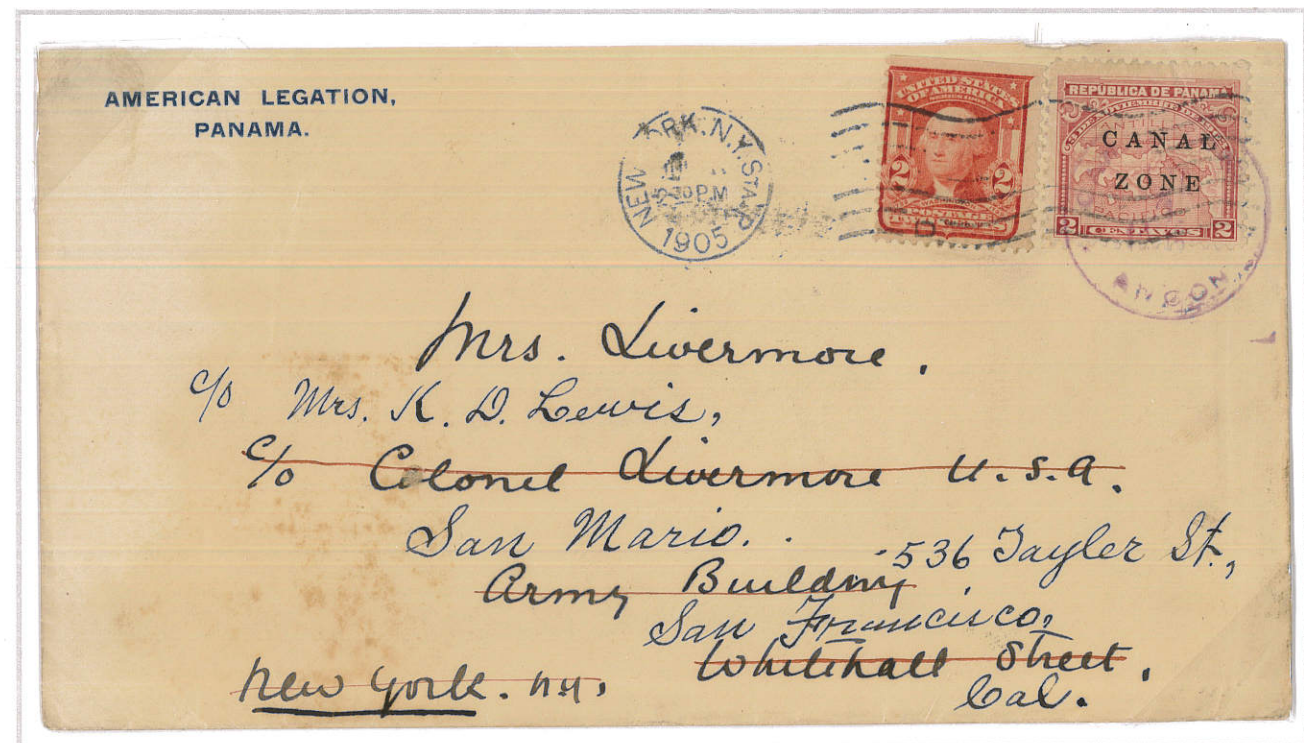 AMERICAN LEGATION,
PANAMA.
NEW YORK, N.Y. STA.
30 PM
1905
UNITED STATES
OF AMERICA
2 2
POSTAGE
REPÚBLICA DE PANAMA
CANAL
ZONE
2 CENTAVOS 2
ANCON
Mrs. Livermore.
c/o Mrs. K. D. Lewis,
c/o Colonel Livermore U.S.A.
San Mario.
536 Tayler St.,
Army Building
San Francisco,
Whitehall Street.
New York. N.Y.
Cal.